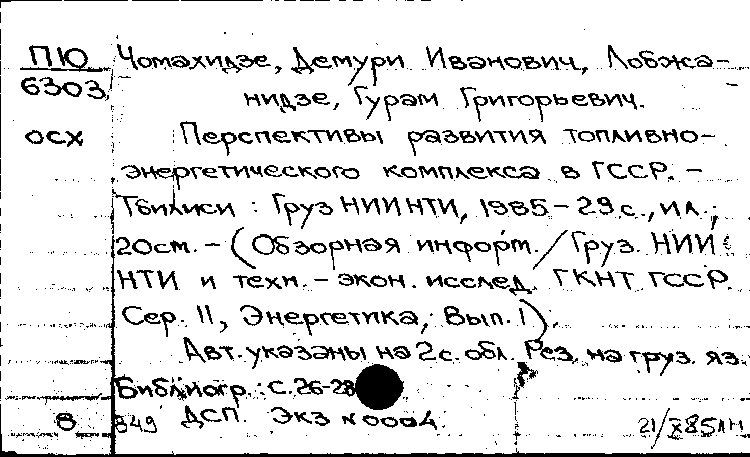 ПЮ Чомахидзе, Демури Иванович, Лобжа-
6303 нидзе, Гурам Григорьевич.
осх Перспективы развития топливно-
энергетического комплекса в ГССР. -
Тбилиси : ГрузНИИНТИ, 1985 - 29 с., ил.;
20см. - (Обзорная информ. / Груз. НИИ
НТИ и техн. - экон. исслед. ГКНТ ГССР.
Сер. 11, Энергетика; Вып. 1).
Авт. указаны на 2 с. обл. Рез. на груз. яз.
Библиогр.: с. 26-28
8 849 ДСП. Экз N 0004. 21/X 85